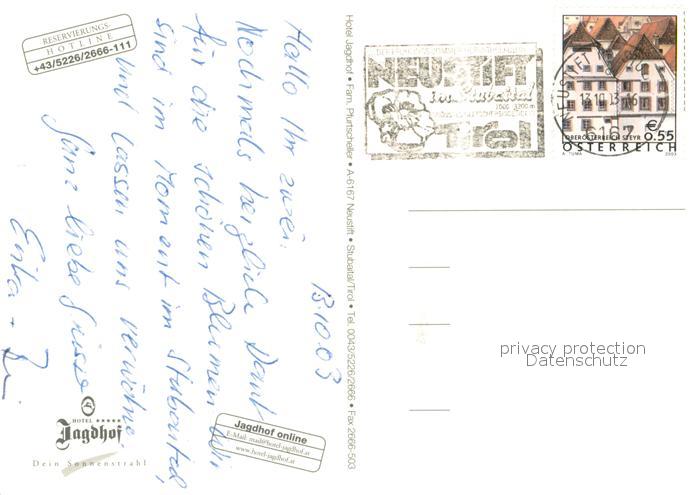 RESERVIERUNGS-
HOTLINE
+43/5226/2666-111
13.10.03
Hallo Ihr zwei.
Nochmals herzlich Dank
für die schönen Blumen. Wir
sind im Moment im Stubaital,
und lassen uns verwöhnen
Ganz liebe Grüsse
Erika +
HOTEL ★★★★★
Jagdhof
Dein Sonnenstrahl
Jagdhof online
E-Mail: mail@hotel-jagdhof.at
www.hotel-jagdhof.at
Hotel Jagdhof • Fam. Pfurtscheller • A-6167 Neustift • Stubaital/Tirol • Tel. 0043/5226/2666 • Fax 2666-503
NEUSTIFT
im Stubaital
Tirol
NEUSTIFT
13.10.03-16
6167
OBERÖSTERREICH STEYR
€ 0.55
ÖSTERREICH
A. TUMA 2003
privacy protection
Datenschutz